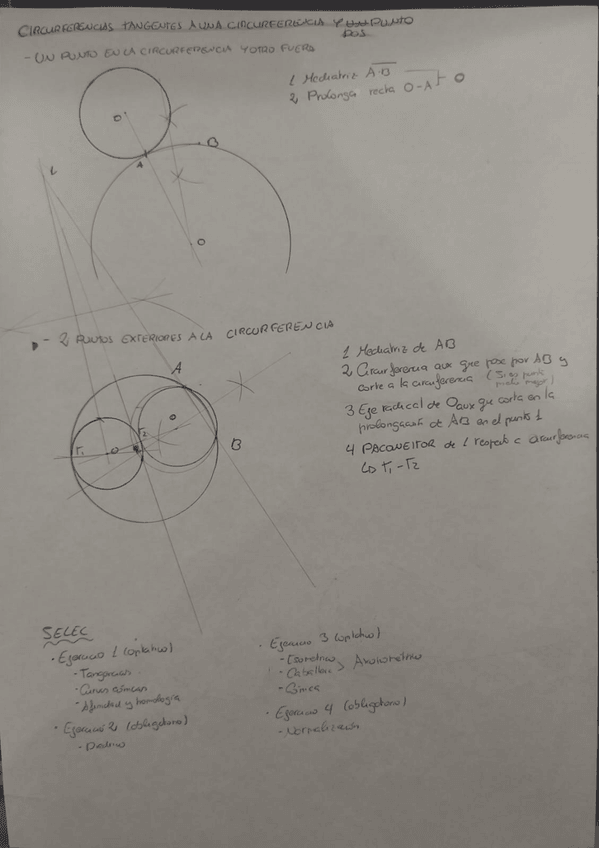 CIRCURFERENCIAS TANGENTES A UNA CIRCURFERENCIA Y PUNTO
DOS
- UN PUNTO EN LA CIRCURFERENCIA Y OTRO FUERA
1 Mediatriz A-B
2 Prolonga recta O-A
O
O'
A
B
L
O
- 2 PUNTOS EXTERIORES A LA CIRCURFERENCIA
1 Mediatriz de AB
2 Circurferencia aux que pase por AB y
corte a la circurferencia
3 Eje radical de Oaux que corta en la
prolongación de AB en el punto 1
4 de 1 respecto a circurferencia
T1-T2
A
B
T1
O
T2
SELEC
· Ejercicio 1 (optativo)
- Tangencias
- Curvas cónicas
- Afinidad y homología
· Ejercicio 2 (obligatorio)
- Diedrico
· Ejercicio 3 (optativo)
- Caballera > Axonometrico
- Cónica
· Ejercicio 4 (obligatorio)
- Normalización